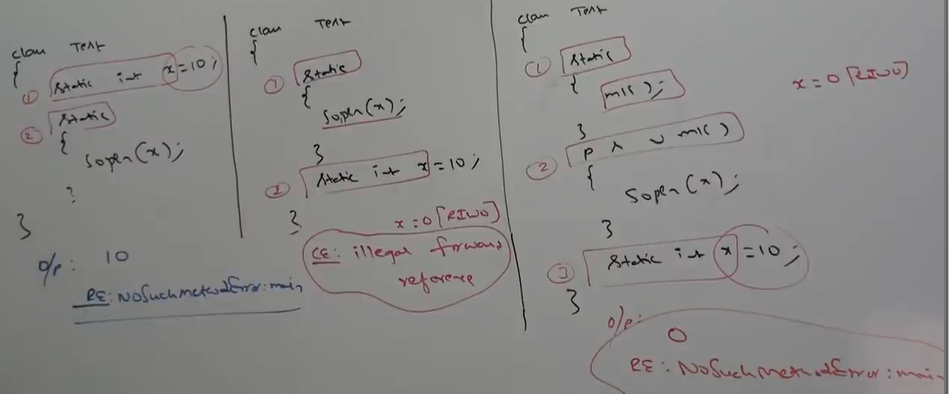 class Test
{
① static int x=10;
② static
{
Sopln(x);
}
}
o/p: 10
RE: NoSuchMethodError: main
class Test
{
① static
{
Sopln(x);
}
② static int x=10;
}
x=0[RIWO]
CE: illegal forward
reference
class Test
{
① static
{
m1();
}
② p s v m1()
{
Sopln(x);
}
③ static int x=10;
}
x=0[RIWO]
o/p:
0
RE: NoSuchMethodError: main